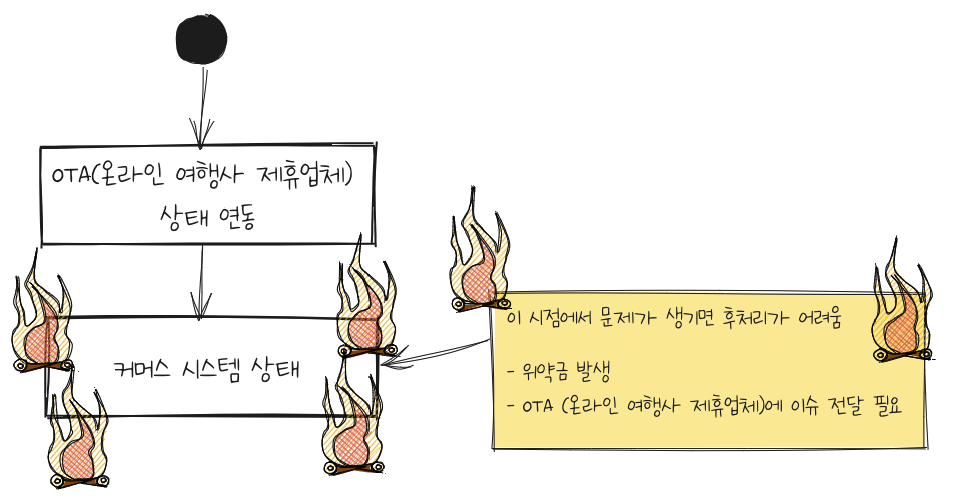 OTA(온라인 여행사 제휴업체)
상태 연동
커머스 시스템 상태
이 시점에서 문제가 생기면 후처리가 어려움
- 위약금 발생
- OTA (온라인 여행사 제휴업체)에 이슈 전달 필요